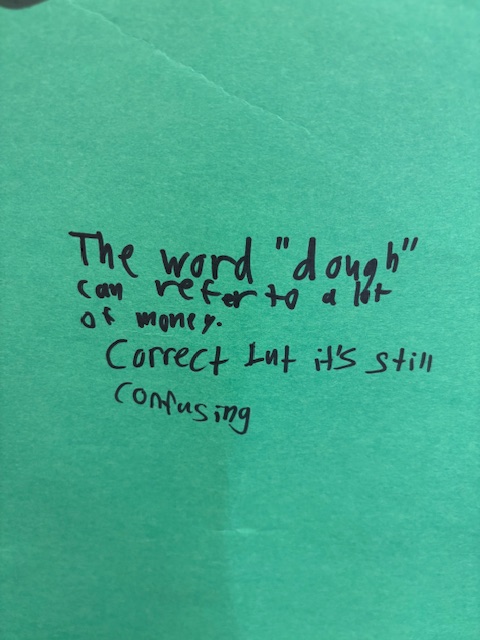 The word "dough"
can refer to a lot
of money.
Correct but it's still
confusing